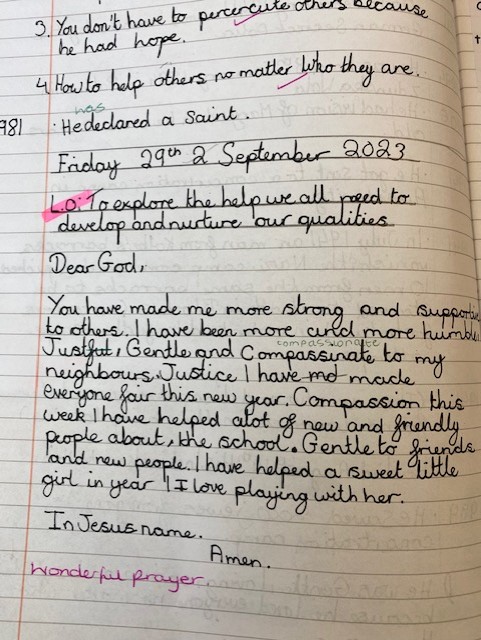 3. You don't have to percercute others because
he had hope.
4. How to help others no matter Who they are.
was
981 · He declared a Saint.
Friday 29th 2 September 2023
L.O: To explore the help we all need to
develop and nurture our qualities
Dear God,
You have made me more strong and supportive
to others. I have been more and more humble
compassionate
Justful, Gentle and Compassinate to my
neighbours. Justice I have md made
everyone fair this new year. Compassion this
week I have helped alot of new and friendly
people about, the school. Gentle to friends
and new people. I have helped a sweet little
girl in year 1 I love playing with her.
In Jesus name.
Amen.
Wonderful prayer.